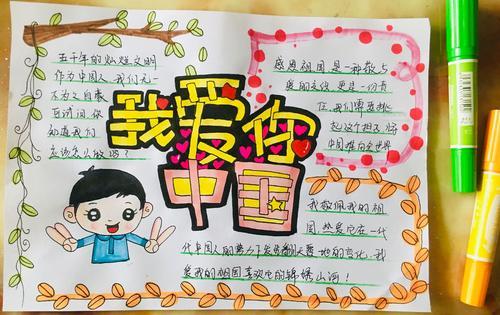 五千年的灿烂文明
作为中国人 我们无一
不为之自豪
百试问你
知道我们
应该怎么做吗？
我爱你
中国
感恩祖国是一种敬与
爱的交织 更是一份责
任 我们需要担
起这个担子 将
中国推向全世界
我敬佩我的祖
国 然是它在一代
代中国人的努力下发生翻天覆地的变化 我
爱我的祖国喜欢它的锦绣山河！